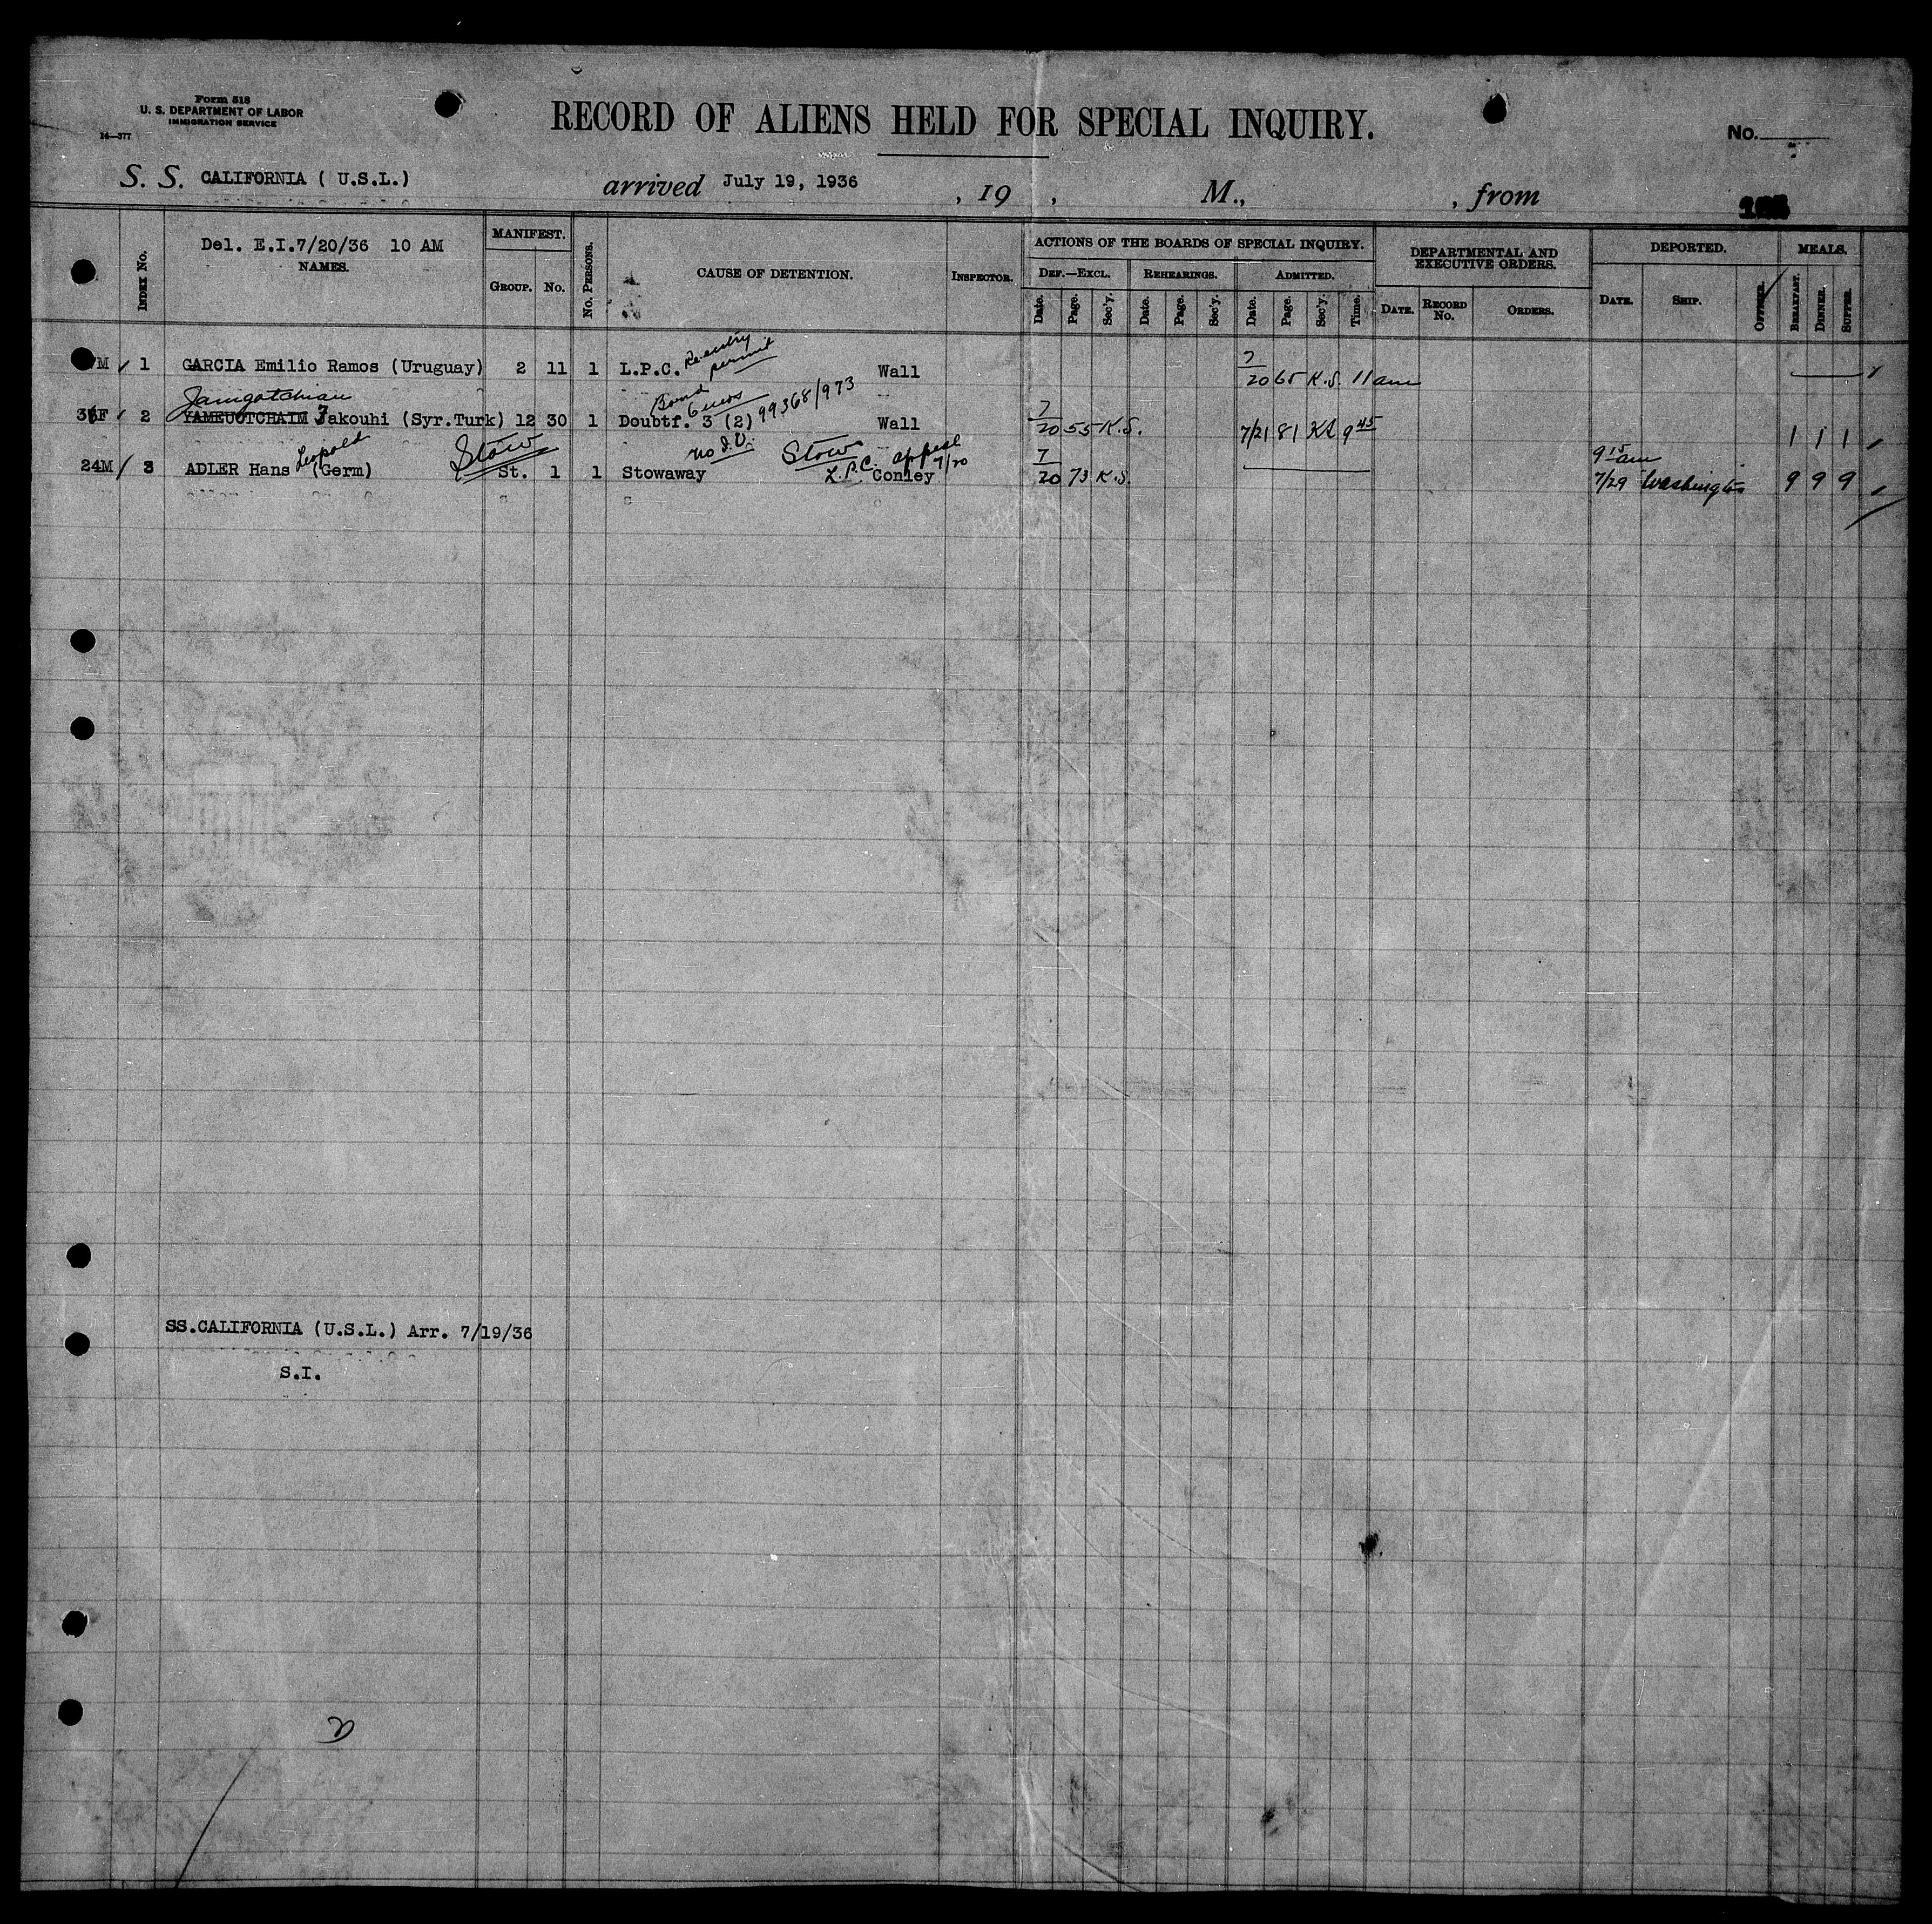 Form 518
U. S. DEPARTMENT OF LABOR
IMMIGRATION SERVICE
14—377
RECORD OF ALIENS HELD FOR SPECIAL INQUIRY.
No.
S. S. CALIFORNIA ( U.S.L.) arrived July 19, 1936 , 19 , M., , from
Del. E.I.7/20/36 10 AM
INDEX No. NAMES. MANIFEST. GROUP. No. No. PERSONS. CAUSE OF DETENTION. INSPECTOR.
ACTIONS OF THE BOARDS OF SPECIAL INQUIRY.
DEF.—EXCL. REHEARINGS. ADMITTED.
Date. Page. Sec'y. Date. Page. Sec'y. Date. Page. Sec'y. Time.
DEPARTMENTAL AND EXECUTIVE ORDERS.
DATE. RECORD No. ORDERS.
DEPORTED.
DATE. SHIP. OFFICER.
MEALS.
BREAKFAST. DINNER. SUPPER.
Re-entry permit
M 1 GARCIA Emilio Ramos (Uruguay) 2 11 1 L.P.C. Wall 7/20 65 K.S. 11 am
Bond 6 mos 99368/973
F 2 YAMEUOTCHAIM Jakouhi (Syr.Turk) 12 30 1 Doubtf. 3 (2) Wall 7/20 55 K.S. 7/21 81 9 45 1 1 1
Leopold Stow no I.V. Stow L.P.C. appeal 7/20
24M 3 ADLER Hans (Germ) St. 1 1 Stowaway Conley 7/20 73 K.S. 9 15 am 7/29 Washington 9 9 9
SS.CALIFORNIA (U.S.L.) Arr. 7/19/36
S.I.